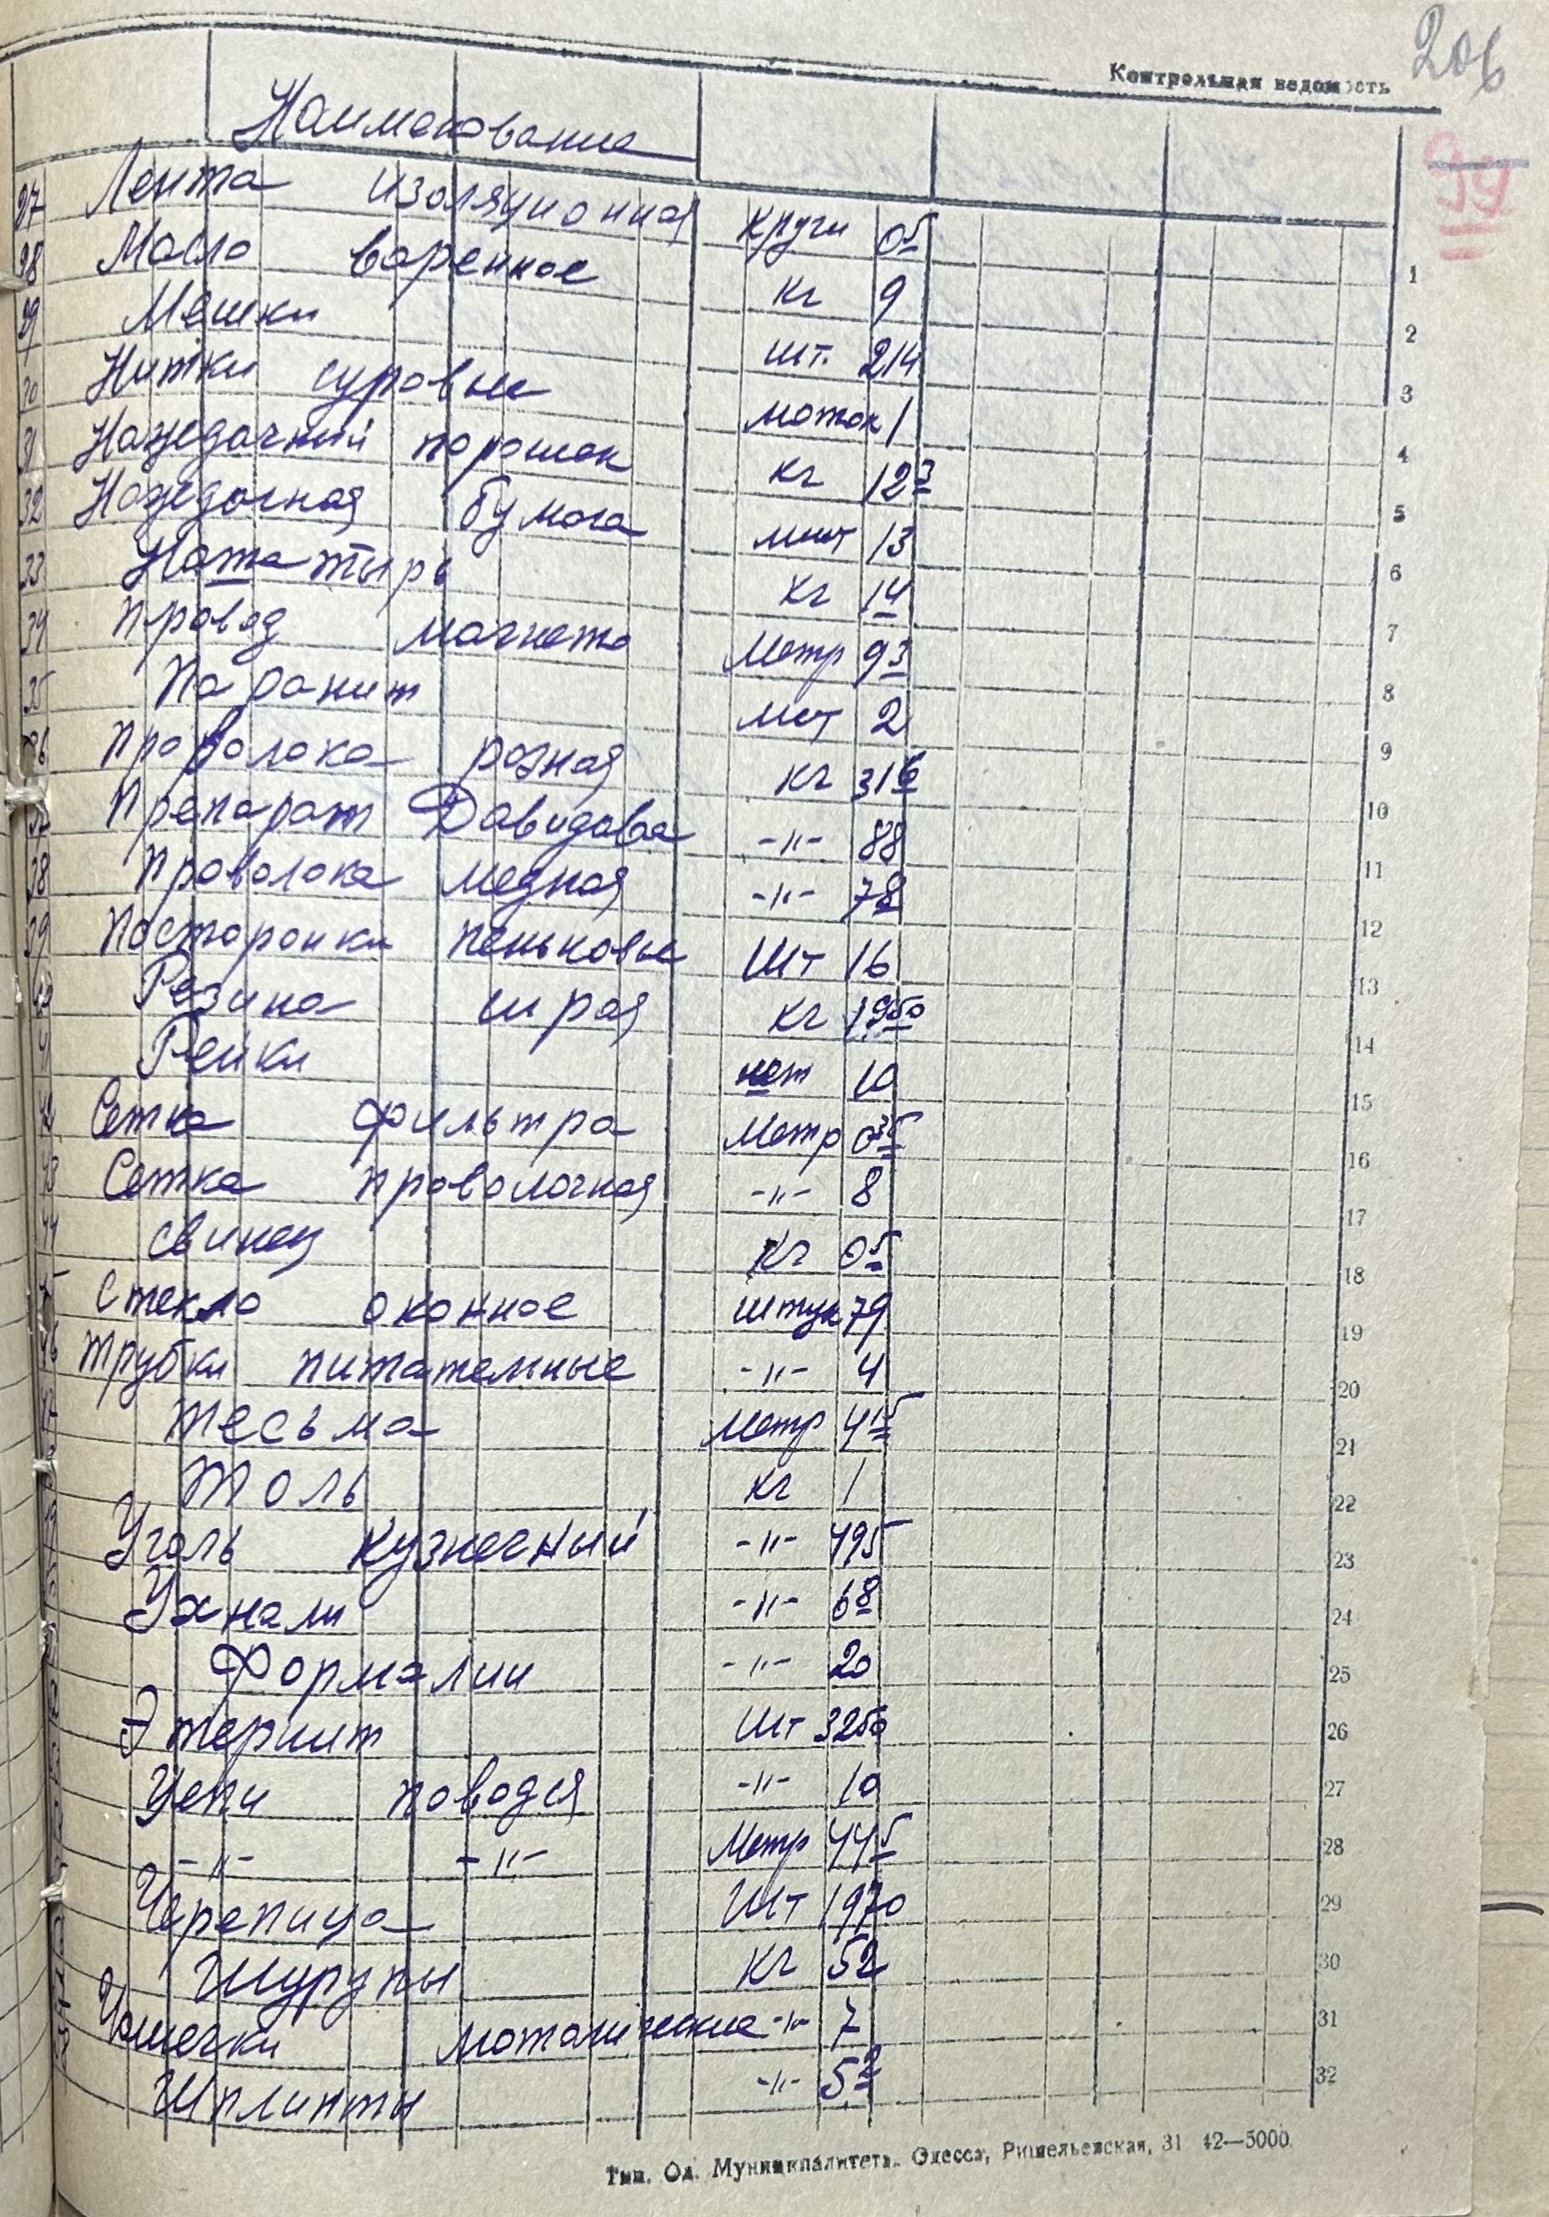 206
Контрольная ведомость
99
Наименование
27 Лента изоляционная круги 05 1
28 Масло вареное кг 9 2
29 Мешки шт. 214 3
30 Нитки суровые моток 1 4
31 Наждачный порошок кг 12 3 5
32 Наждачная бумага лист 13 6
33 Нашатырь кг 14 7
34 Провод магнето Метр 93 8
35 Паранит лист 2 9
36 Проволока разная кг 316 10
37 Препарат Давидова -"- 88 11
38 Проволока медная -"- 78 12
39 Посторонки пеньковые шт 16 13
40 Резина сырая кг 19 50 14
41 Рейки шт 10 15
42 Сетка фильтра Метр 0 35 16
43 Сетка проволочная -"- 8 17
44 Свинец кг 0 5 18
45 Стекло оконное штук 79 19
46 Трубки питательные -"- 4 20
47 Тесьма Метр 4 15 21
Толь кг 1 22
Уголь кузнечный -"- 495 23
Ухнали -"- 6 8 24
Формалин -"- 20 25
Этернит шт 3250 26
Цепи поводся -"- 10 27
-"- -"- Метр 44 5 28
Черепица шт 1970 29
Шурупы кг 52 30
металические -"- 7 31
Шплинты -"- 5 2 32
Тип. Од. Муниципалитета. Одесса, Ришельевская, 31 42—5000.